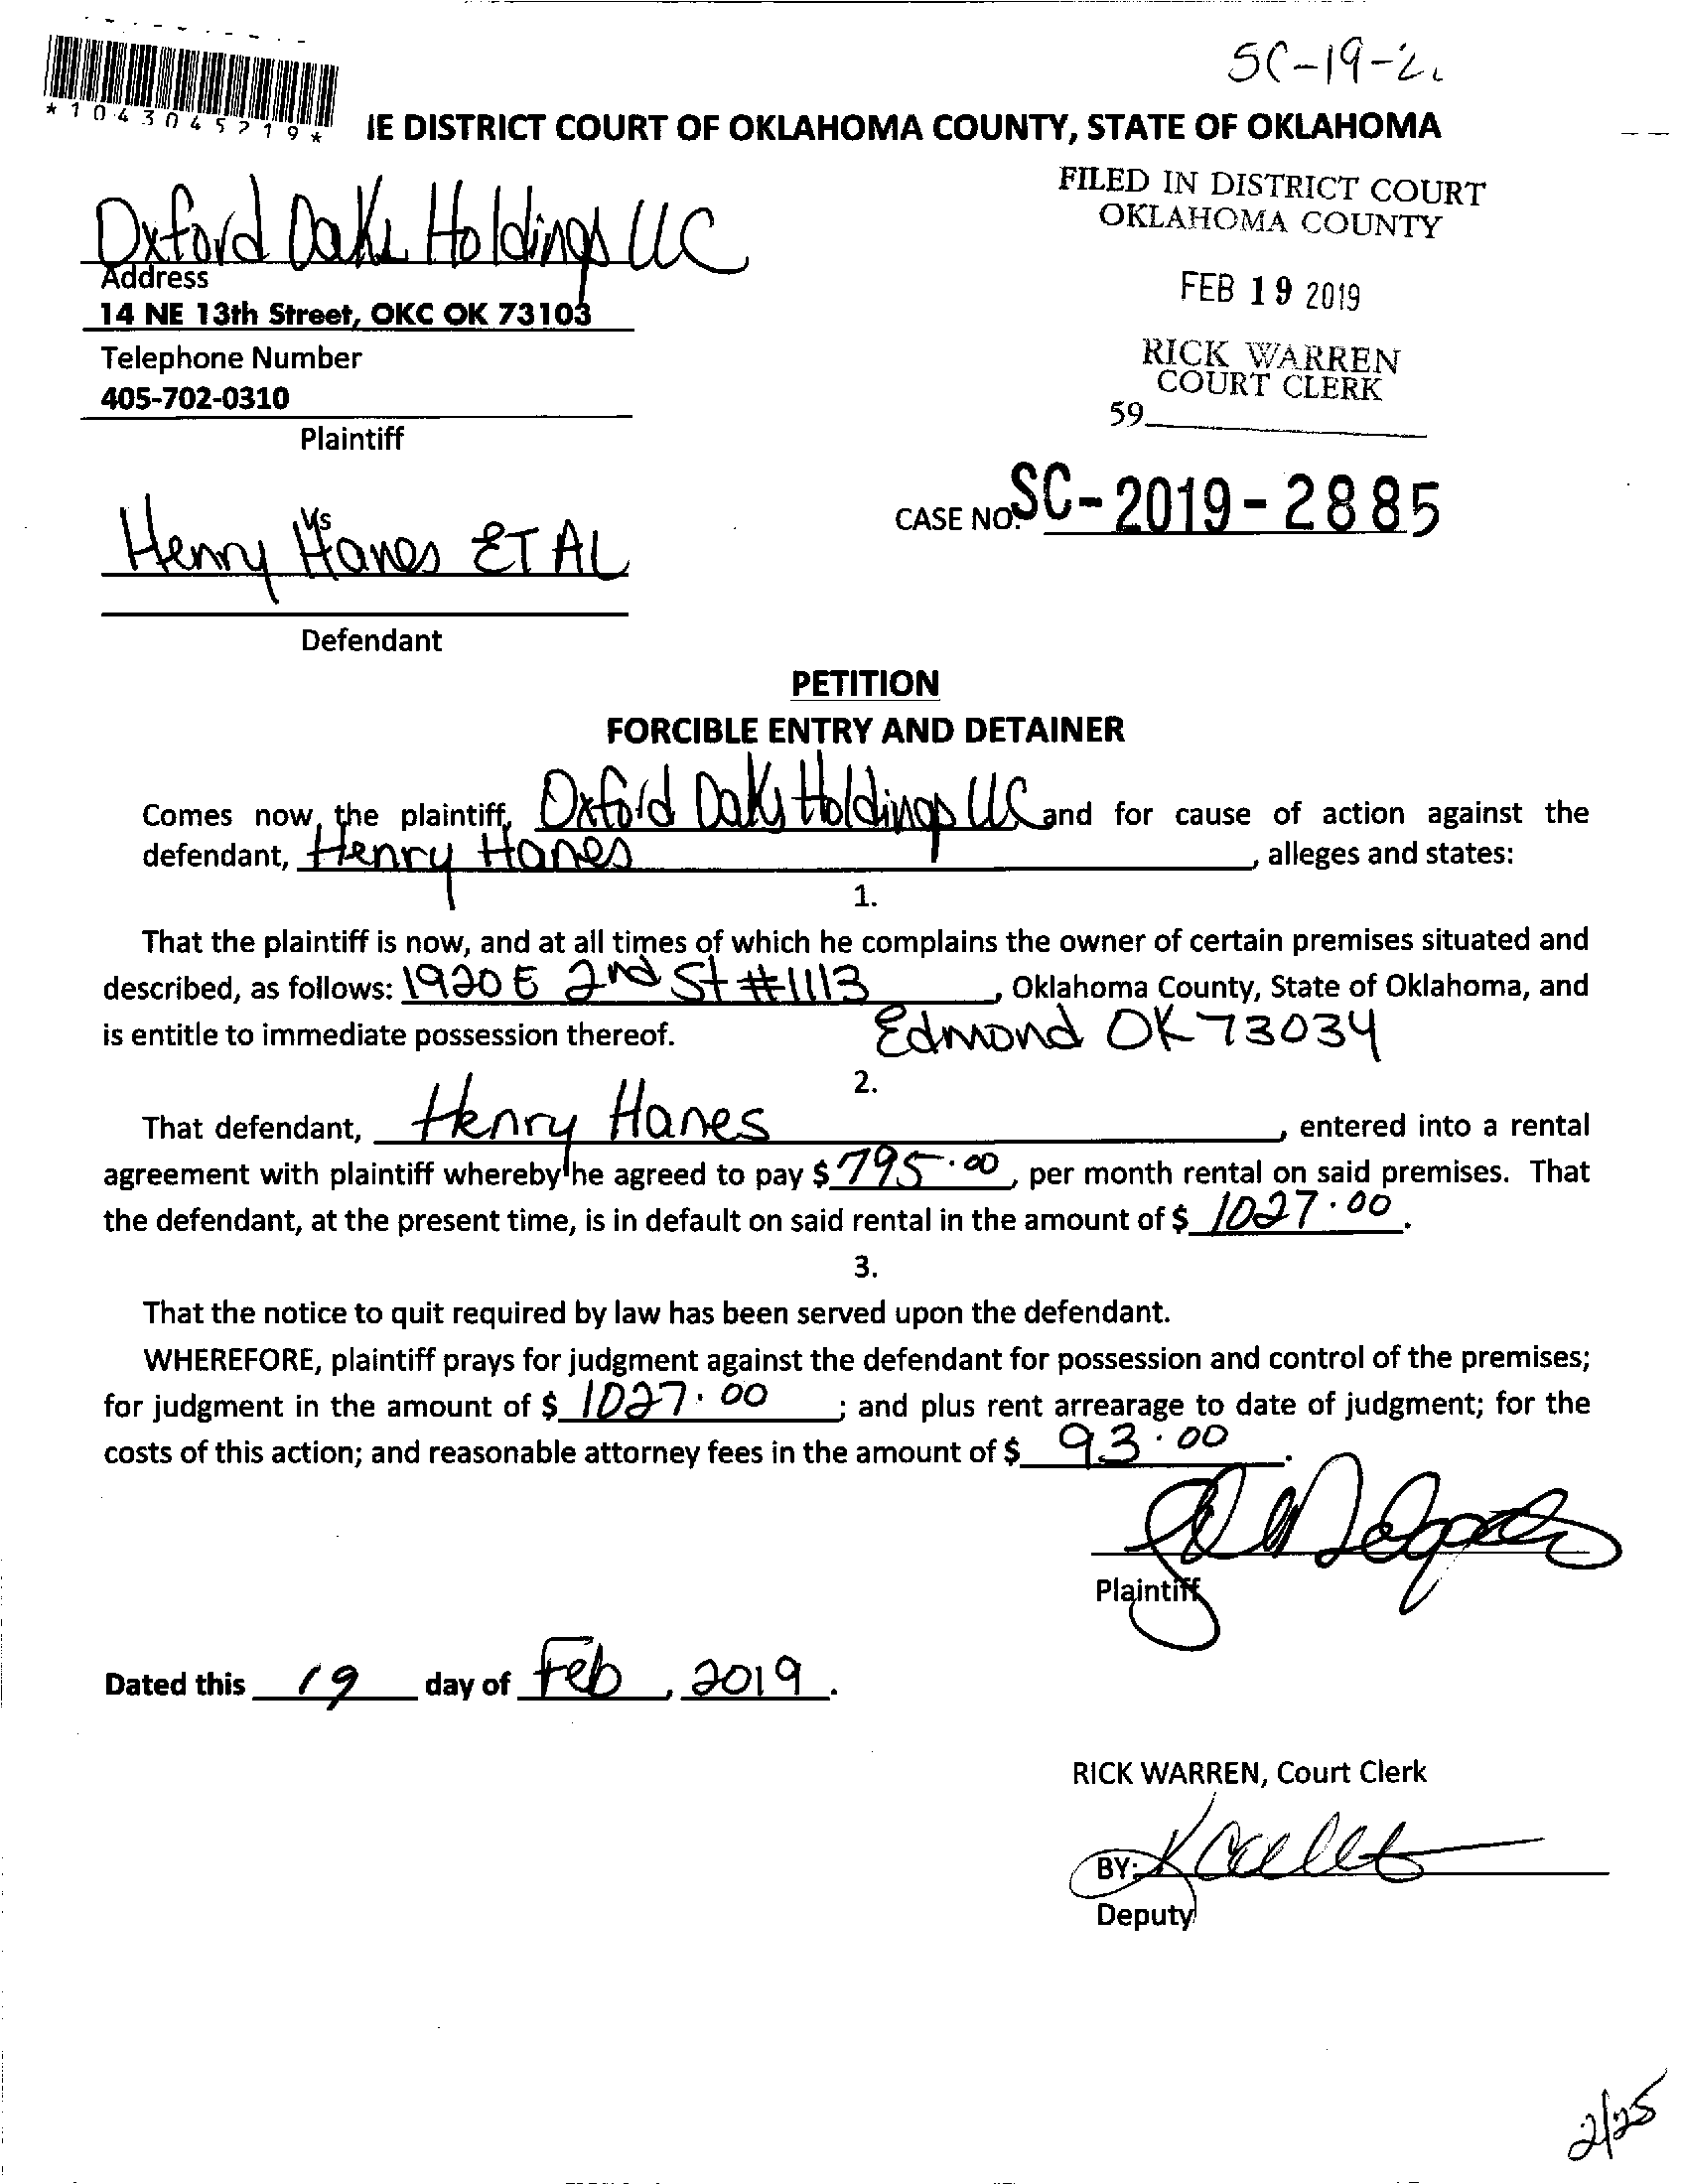 SC-19-2
*1043045219*
IE DISTRICT COURT OF OKLAHOMA COUNTY, STATE OF OKLAHOMA
FILED IN DISTRICT COURT
OKLAHOMA COUNTY
Oxford Oaks Holdings LLC
Address
14 NE 13th Street, OKC OK 73103
FEB 19 2019
Telephone Number
RICK WARREN
COURT CLERK
405-702-0310
59
Plaintiff
CASE NO. SC-2019-2885
Vs
Henry Hanes ET AL
Defendant
PETITION
FORCIBLE ENTRY AND DETAINER
Comes now, the plaintiff, Oxford Oaks Holdings LLC and for cause of action against the
defendant, Henry Hanes, alleges and states:
1.
That the plaintiff is now, and at all times of which he complains the owner of certain premises situated and
described, as follows: 1920 E 2nd St #1113, Oklahoma County, State of Oklahoma, and
is entitle to immediate possession thereof. Edmond OK 73034
2.
That defendant, Henry Hanes, entered into a rental
agreement with plaintiff whereby he agreed to pay $ 795.00, per month rental on said premises. That
the defendant, at the present time, is in default on said rental in the amount of $ 1027.00.
3.
That the notice to quit required by law has been served upon the defendant.
WHEREFORE, plaintiff prays for judgment against the defendant for possession and control of the premises;
for judgment in the amount of $ 1027.00; and plus rent arrearage to date of judgment; for the
costs of this action; and reasonable attorney fees in the amount of $ 93.00.
Plaintiff
Dated this 19 day of Feb, 2019.
RICK WARREN, Court Clerk
BY:
Deputy
2/25